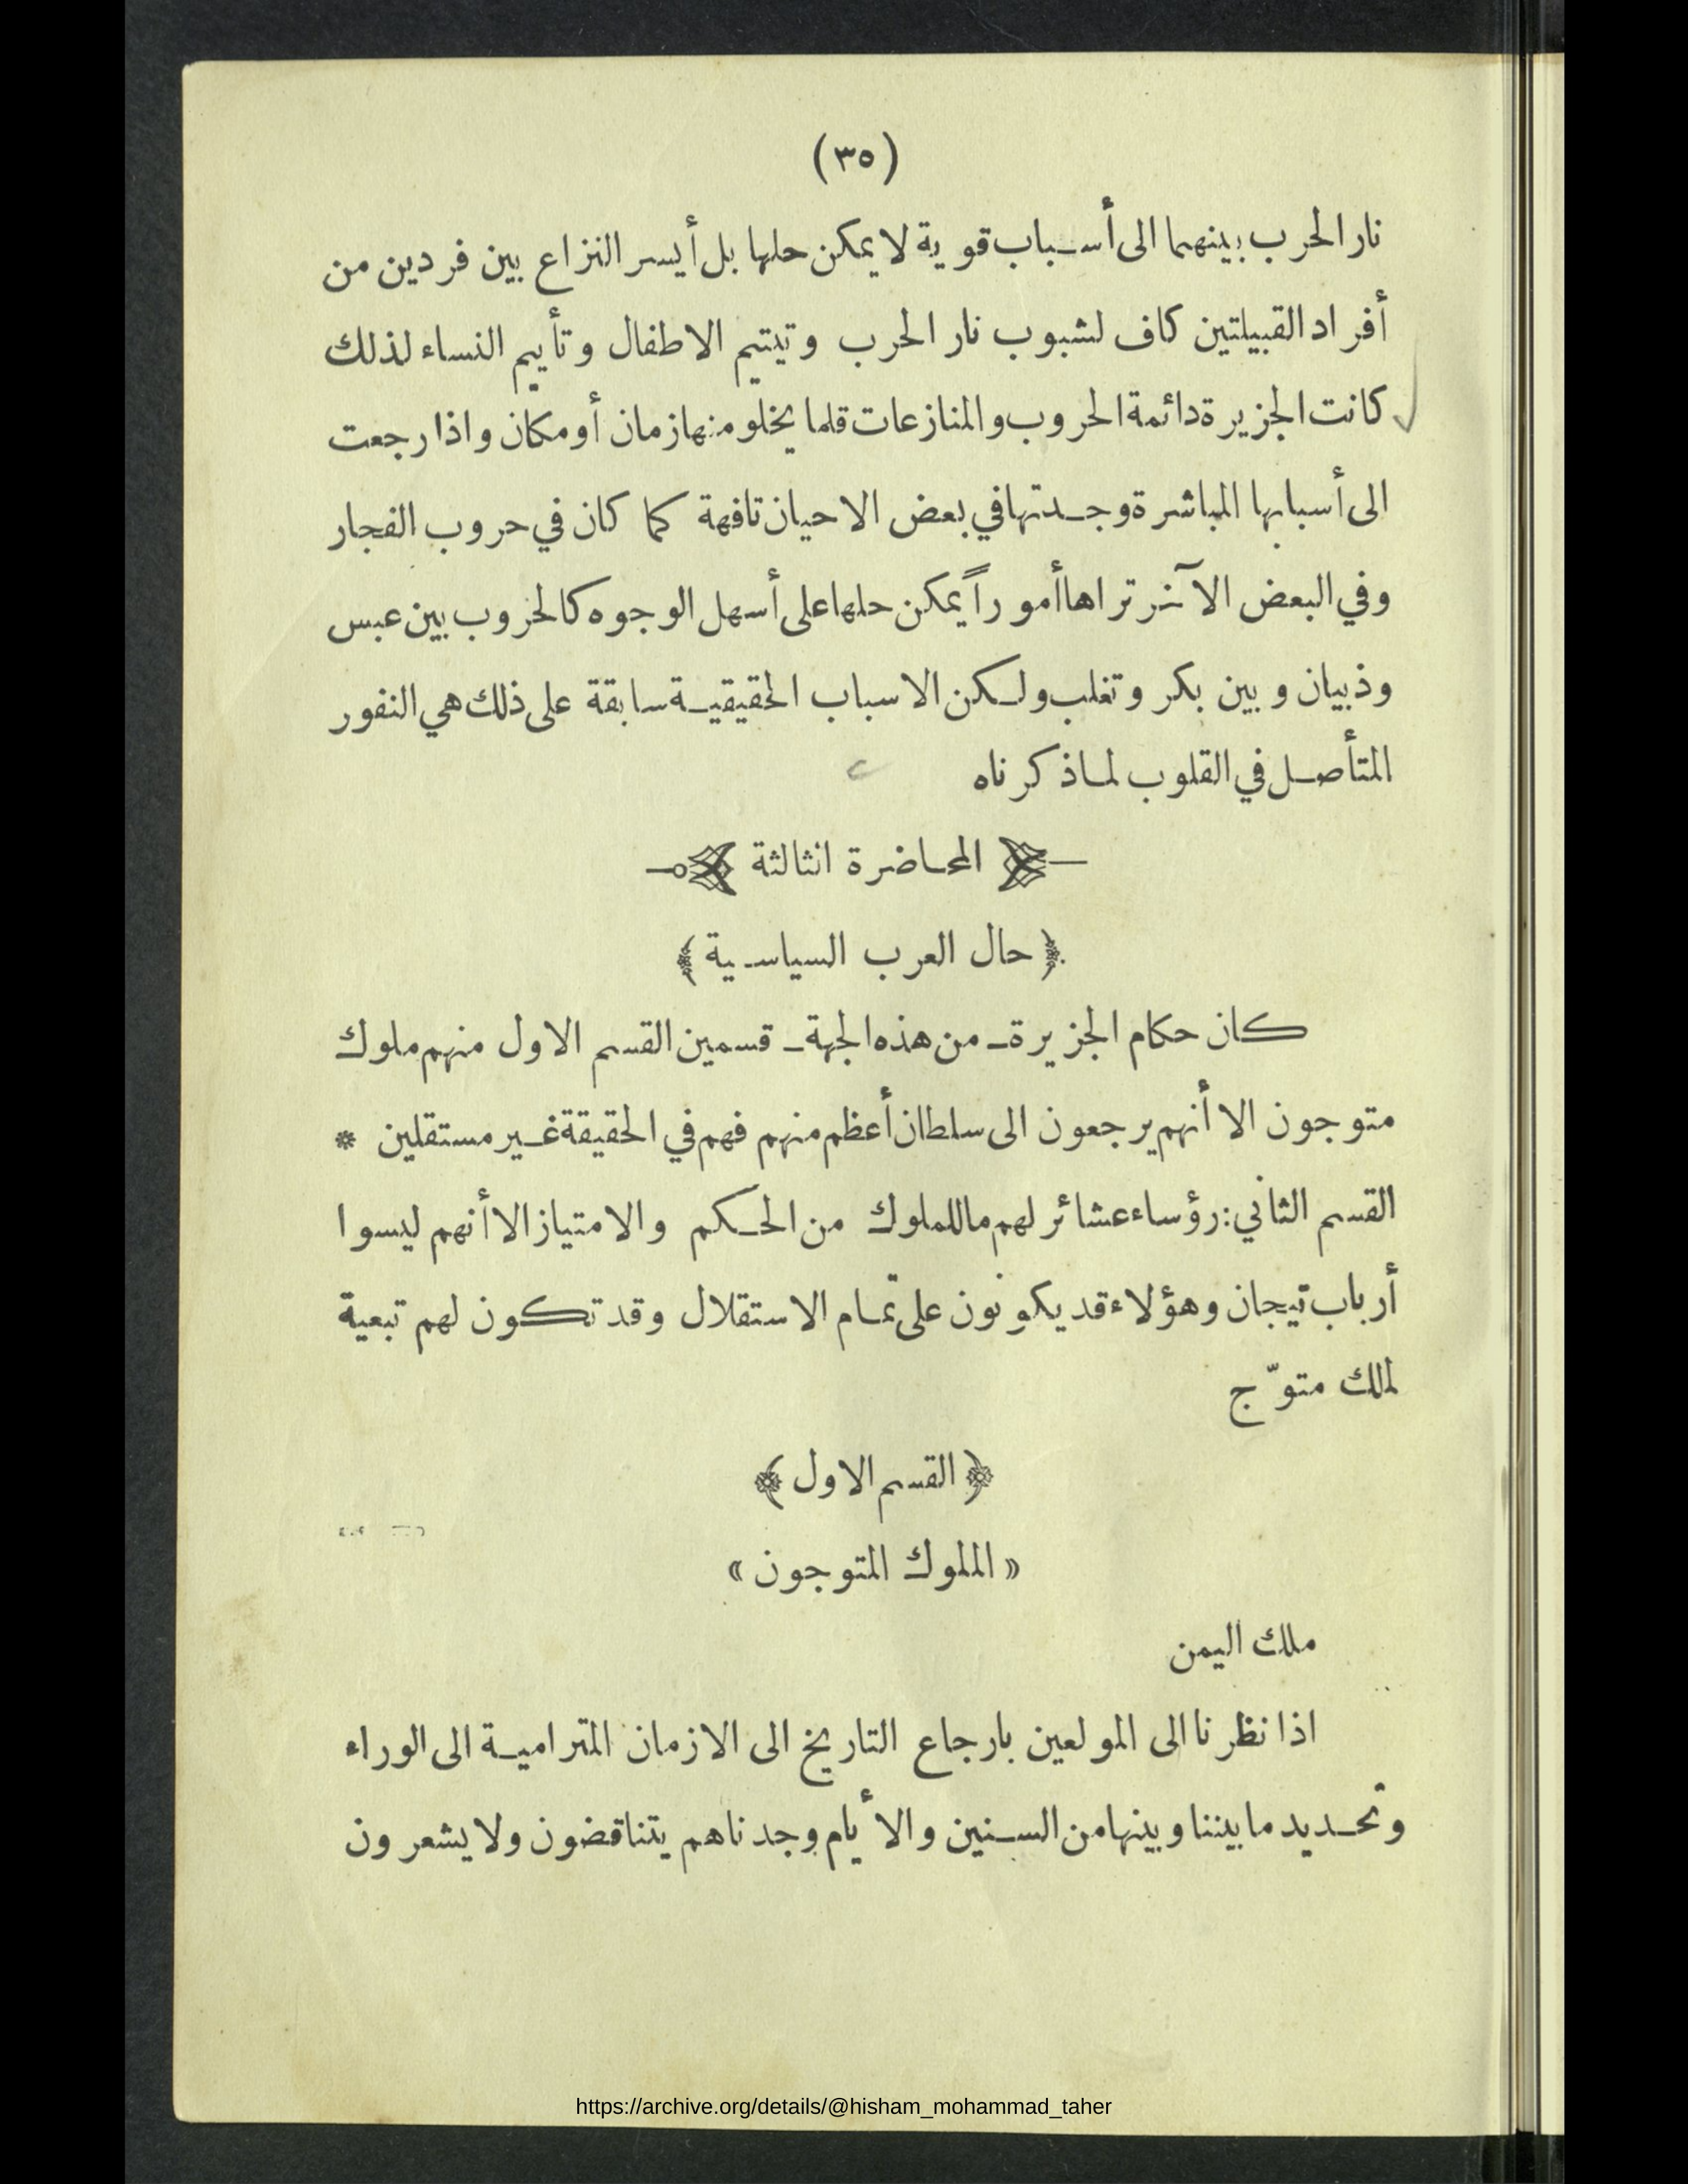 (٣٥)
نار الحرب بينهما الى أسباب قوية لا يمكن حلها بل أيسر النزاع بين فردين من
أفراد القبيلتين كاف لشبوب نار الحرب وتيتيم الاطفال وتأييم النساء لذلك
كانت الجزيرة دائمة الحروب والمنازعات قلما يخلو منها زمان أو مكان واذا رجعت
الى أسبابها المباشرة وجدتها في بعض الاحيان تافهة كما كان في حروب الفجار
وفي البعض الآخر تراها أموراً يمكن حلها على أسهل الوجوه كالحروب بين عبس
وذبيان وبين بكر وتغلب ولكن الاسباب الحقيقية سابقة على ذلك هي النفور
المتأصل في القلوب لما ذكرناه
المحاضرة الثالثة
﴿ حال العرب السياسية ﴾
كان حكام الجزيرة ـ من هذه الجهة ـ قسمين القسم الاول منهم ملوك
متوجون الا أنهم يرجعون الى سلطان أعظم منهم فهم في الحقيقة غير مستقلين *
القسم الثاني: رؤساء عشائر لهم ما للملوك من الحكم والامتياز الا أنهم ليسوا
أرباب تيجان وهؤلاء قد يكونون على تمام الاستقلال وقد تكون لهم تبعية
لملك متوّج
﴿ القسم الاول ﴾
« الملوك المتوجون »
ملك اليمن
اذا نظرنا الى المولعين بارجاع التاريخ الى الازمان المترامية الى الوراء
وتحديد ما بيننا وبينها من السنين والأيام وجدناهم يتناقضون ولا يشعرون
https://archive.org/details/@hisham_mohammad_taher